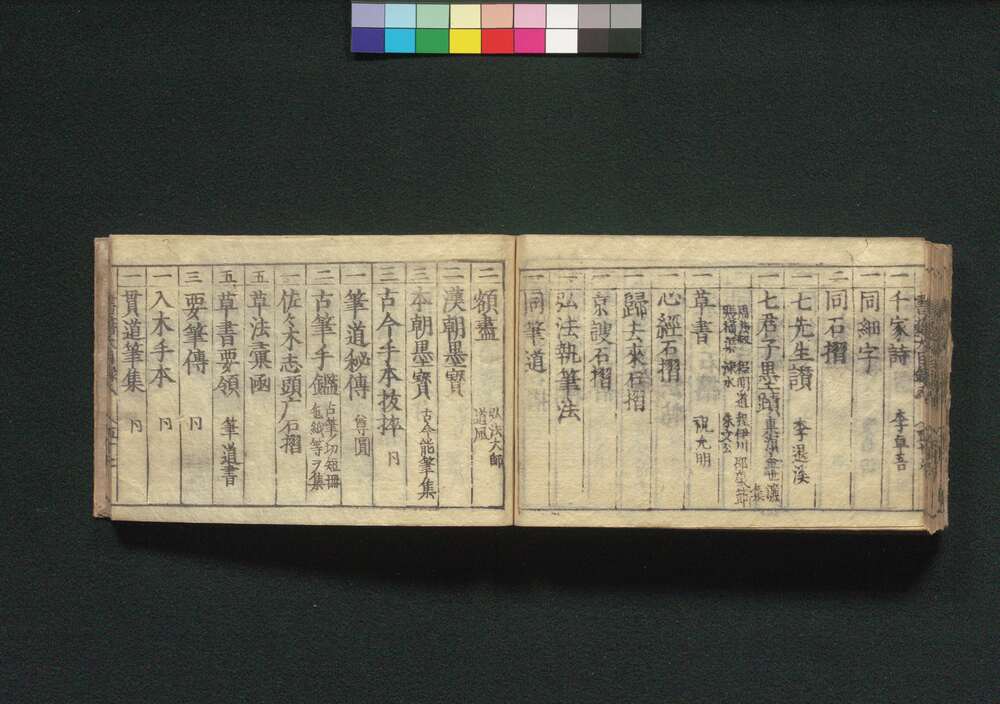 一 千家詩 李卓吾
一 同細字
二 同石摺
一 七先生讃 李退溪
一 七君子墨蹟
一 草書 祝允明
一 心經石摺
一 歸去來石摺
一 京謏石摺
一 弘法執筆法
一 同筆道
二 額盡 弘法大師 道風
二 漢朝墨寳
三 本朝墨寳 古今能筆集
三 古今手本抜捽
一 筆道秘傳 尊圓
二 古筆手鑑 古筆ノ切短冊 色紙等ヲ集
一 佐々木志頭广石摺
五 草法彙凾
五 草書要領 筆道書
三 要筆傳
一 入木手本
一 貫道筆集